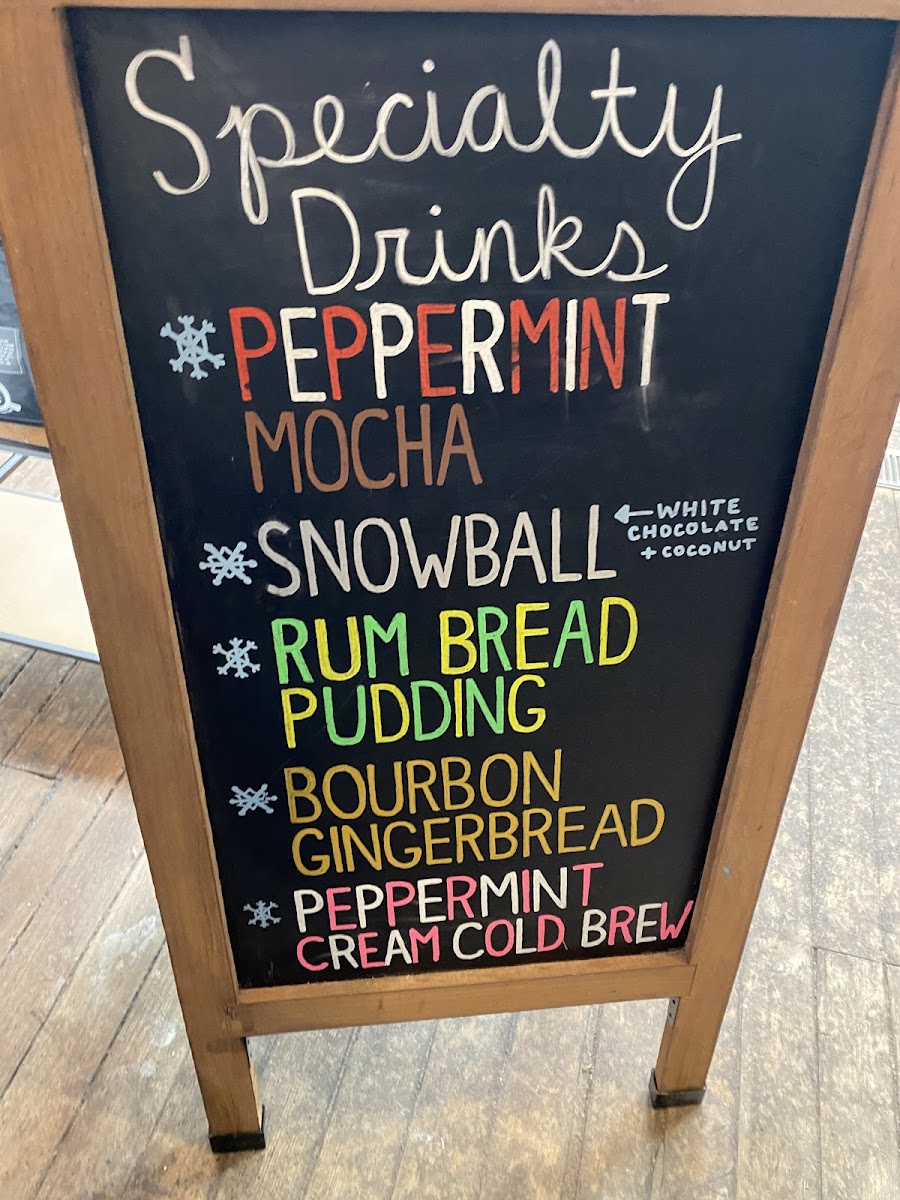 Specialty
Drinks
PEPPERMINT
MOCHA
SNOWBALL
WHITE
CHOCOLATE
+ COCONUT
RUM BREAD
PUDDING
BOURBON
GINGERBREAD
PEPPERMINT
CREAM COLD BREW